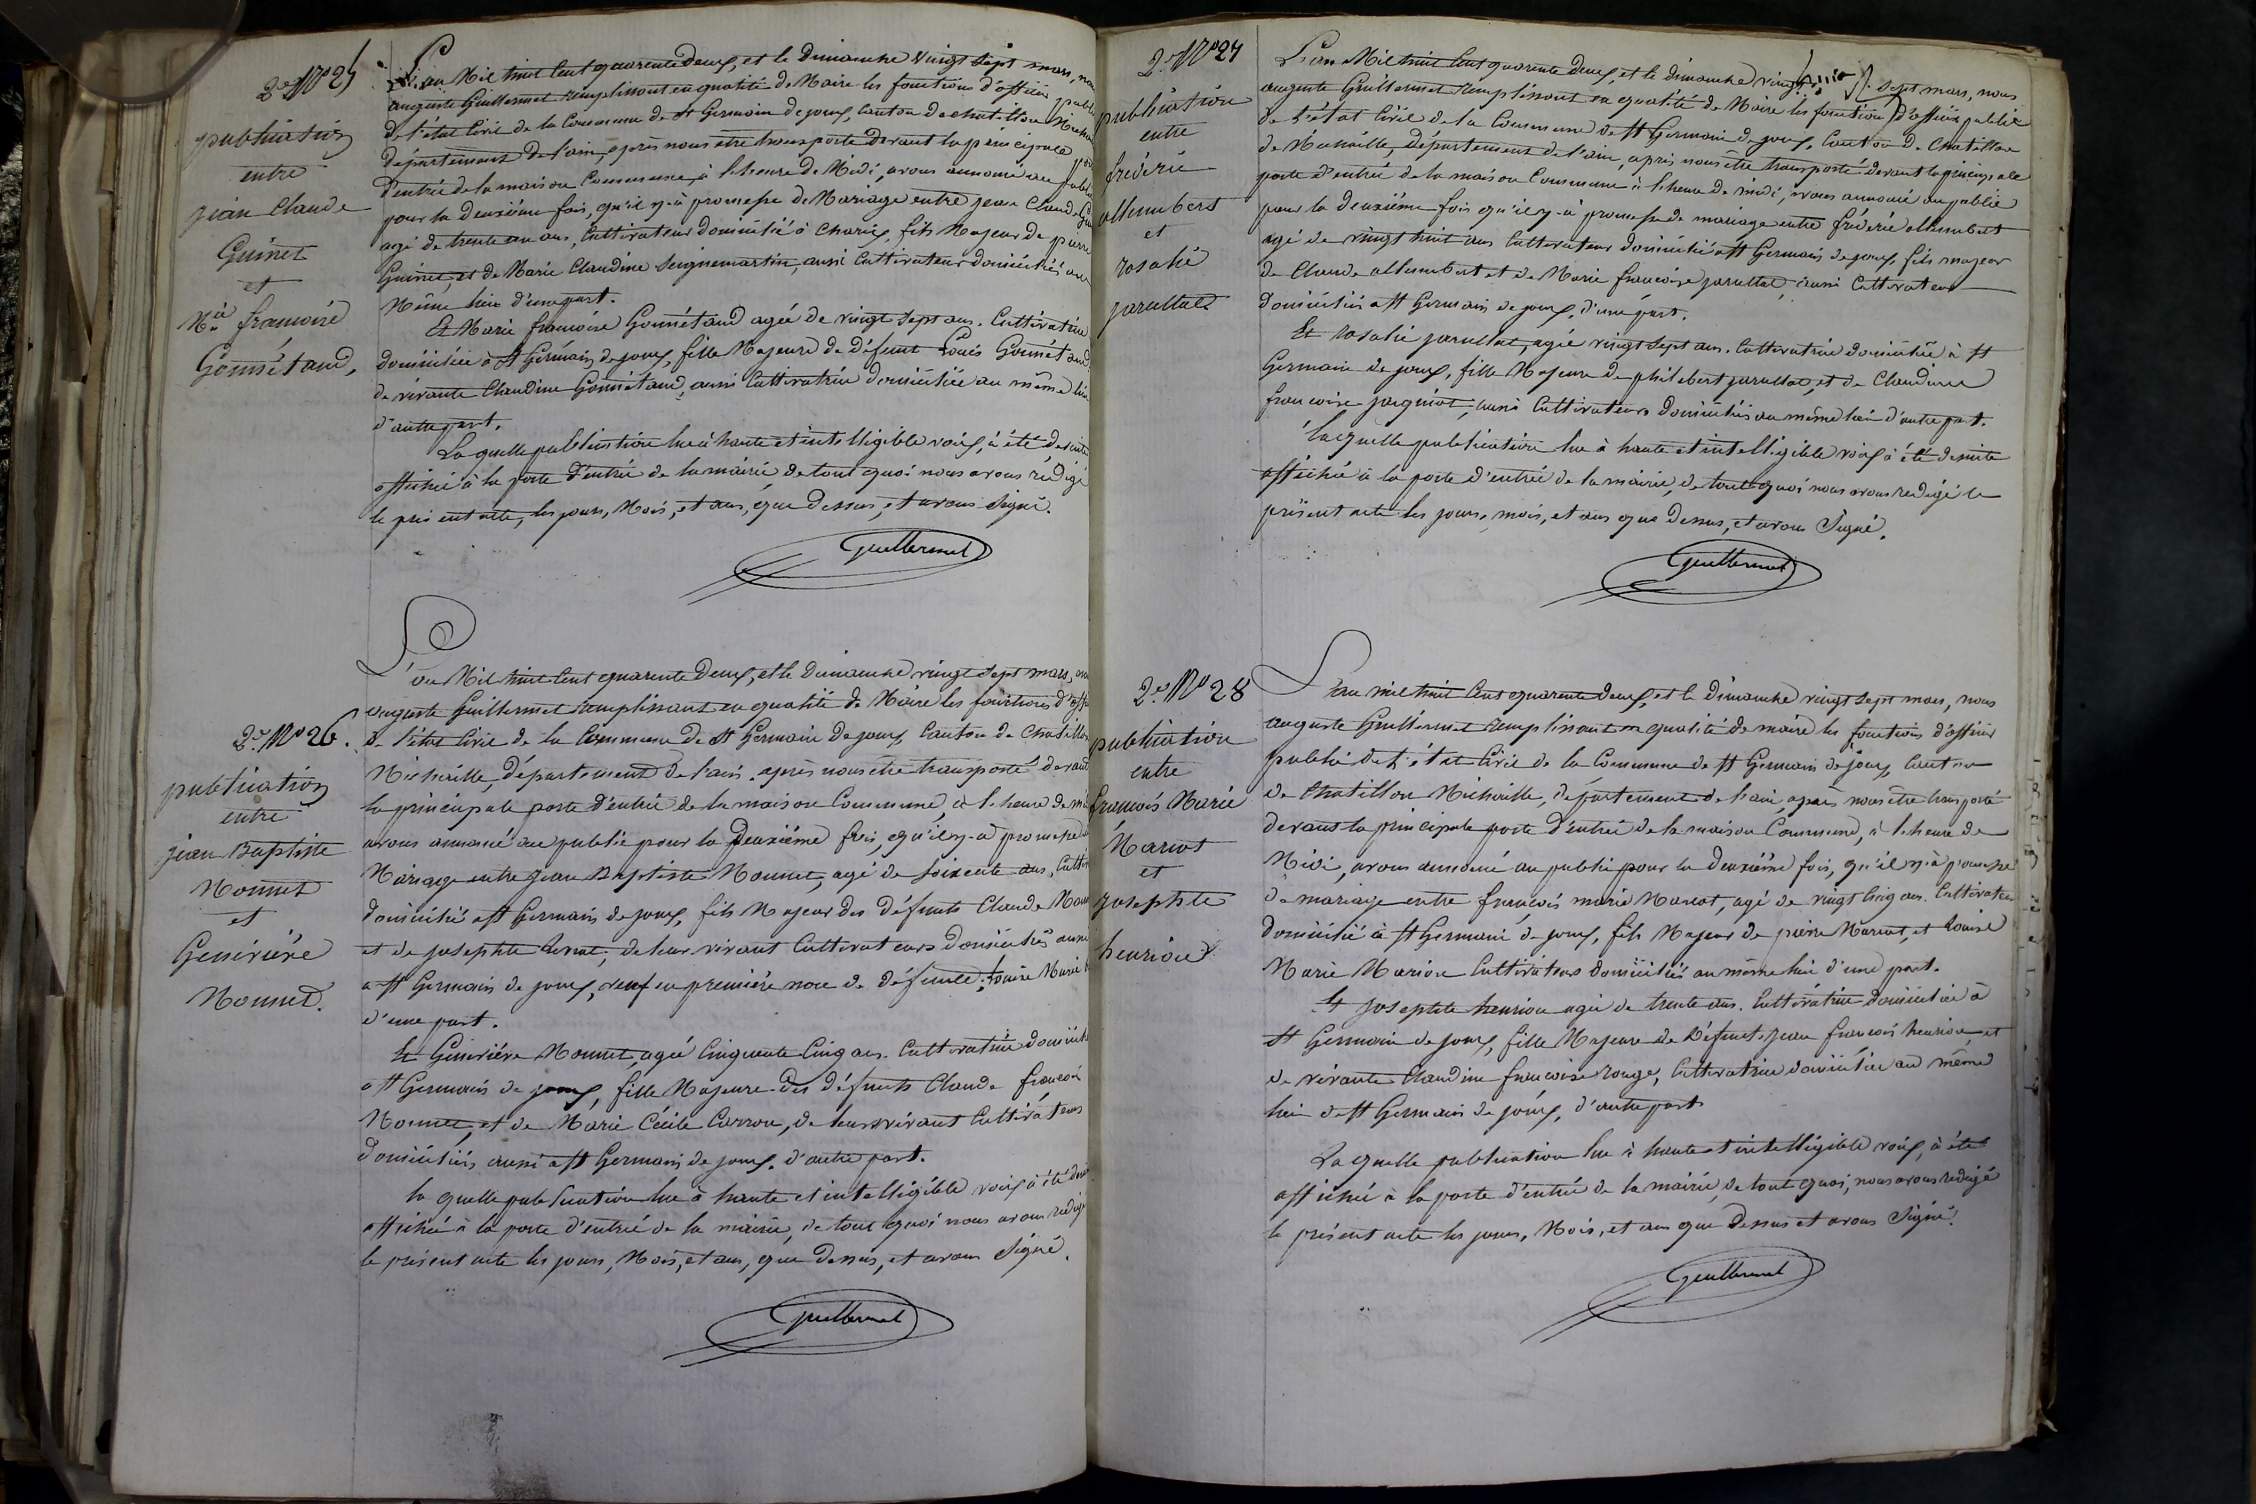 2e No 25
publication
entre
jean Claude
Guinet
et
Mie françoise
Gonnétand,
L'an Mil huit Cent quarente Deux, et le Dimanche vingt sept mars, nous
auguste Guillermet remplissant en qualité de Maire les fonctions d'officier public
de l'état Civil de la Commune de St Germain de joux, Canton de chatillon Michaille
département de l'ain, après nous être transporté devant la principale porte
d'entrée de la maison Commune, à l'heure de Midi, avons annoncé au public
pour la deuxième fois, qu'il y-à promesse de Mariage entre jean Claude Guinet
agé de trente un ans, Cultivateur domicilié à Charix, fils Majeur de pierre
Guinet, et de Marie Claudine Seignemartin, aussi Cultivateurs domiciliés au
Même lieu d'une part.
Et Marie françoise Gonnétand agée de vingt sept ans. Cultivatrice
domiciliée à St Germain de joux, fille Majeure de Défunt Louis Gonnétand
de vivante Claudine Gonnétand, aussi Cultivatrice domiciliée au même lieu
d'autre part.
La quelle publication lue à haute et intelligible voix, à été de suite
affichée à la porte d'entrée de la mairie, de tout quoi nous avons rédigé
le présent acte, les jours, Mois, et ans, que Dessus, et avons Signé.
Guillermet
2e No 26.
publication
entre
jean Baptiste
Monnet
et
Geneviève
Monnet.
L'an Mil huit Cent quarente Deux, et le Dimanche vingt sept mars, nous
auguste Guillermet remplissant en qualité de Maire les fonctions d'officier
de l'état Civil de la Commune de St Germain de joux, Canton de Chatillon
Michaille, département de l'ain, après nous être transporté devant
la principale porte d'entrée de la maison Commune, à l'heure de midi
avons annoncé au public pour la Deuxième fois, qu'il y-a promesse de
Mariage entre jean Baptiste Monnet, agé de soixente ans, Cultiv
domicilié à St Germain de joux, fils Majeur des Défunts Claude Monnet
et de josephte de leur vivant Cultivateurs domiciliés aussi
à St Germain de joux, veuf en première noce de défunte Marie
d'une part.
Et Geneviève Monnet, agée Cinquente Cinq ans. Cultivatrice domiciliée
à St Germain de joux, fille Majeure des défunts Claude françois
Monnet, et de Marie Cécile Carron, de leur vivant Cultivateurs
domiciliés aussi à St Germain de joux, d'autre part.
la quelle publication lue à haute et intelligible voix, à été de
affichée à la porte d'entrée de la mairie, de tout quoi nous avons rédigé
le présent acte les jours, Mois, et ans, que dessus, et avons Signé.
Guillermet
2e No 27
publication
entre
fréderic
allumbert
et
rosalie
jarullat
L'an Mil huit Cent quarente Deux, et le dimanche vingt sept mars, nous
auguste Guillermet remplissant en qualité de Maire les fonctions d'officier public
de l'état Civil de la Commune de St Germain de joux, Canton de Chatillon
de Michaille, Département de l'ain, après nous être transporté devant la principale
porte d'entrée de la maison Commune à l'heure de midi, avons annoncé au public
pour la deuxième fois qu'il y-à promesse de mariage entre fréderic allumbert
agé de vingt huit ans Cultivateur domicilié à St Germain de joux, fils majeur
de Claude allumbert et de Marie françoise jarullat, aussi Cultivateurs
domiciliés à St Germain de joux, d'une part.
Et rosalie jarullat, agée vingt sept ans. Cultivatrice domiciliée à St
Germain de joux, fille Majeure de philibert jarullat, et de Claudine
françoise jacquiot, aussi Cultivateurs domiciliés au même lieu d'autre part.
laquelle publication lue à haute et intelligible voix à été de suite
affichée à la porte d'entrée de la mairie, de tout quoi nous avons redigé le
présent acte les jours, mois, et ans que Dessus, et avons Signé.
Guillermet
2e No 28
publication
entre
françois Marie
Marcot
et
josephte
henriou
L'an mil huit Cent quarente deux, et le Dimanche vingt sept mars, nous
auguste Guillermet remplissant en qualité de maire les fonctions d'officier
public de l'état Civil de la Commune de St Germain de joux, Canton
de Chatillon Michaille, département de l'ain, après nous être transporté
devant la principale porte d'entrée de la maison Commune, à l'heure de
Midi, avons annoncé au public pour la deuxième fois, qu'il y-à promesse
de mariage entre françois marie Marcot, agé de vingt Cinq ans. Cultivateur
domicilié à St Germain de joux, fils Majeur de pierre Marcot, et Louise
Marie Marion Cultivateurs domiciliés au même lieu d'une part.
Et josephte henriou agée de trente ans. Cultivatrice domiciliée à
St Germain de joux, fille Majeure de Défunt jean françois henriou et
de vivante Claudine françoise rouge, Cultivatrice domiciliée au même
lieu de St Germain de joux, d'autre part.
La quelle publication lue à haute et intelligible voix, à été
affichée à la porte d'entrée de la mairie, de tout quoi, nous avons redigé
le présent acte les jours, Mois, et ans que dessus et avons Signé.
Guillermet